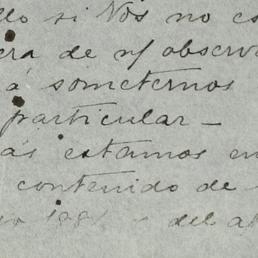 llo si Nós no es
era de n/ observa
á someternos
particular—
ás estamos en
contenido de
del a